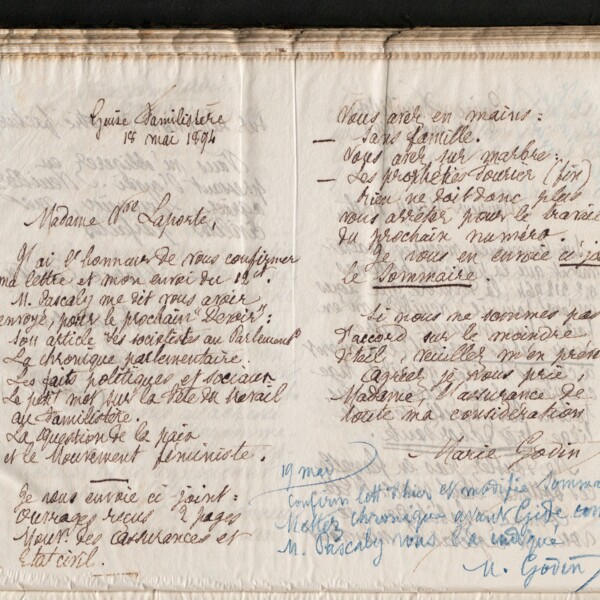 Guise Familistère
18 mai 1894
Madame Vve Laporte,
J'ai l'honneur de vous confirmer
ma lettre et mon envoi du 12 ct.
M. Pascaly me dit vous avoir
envoyé, pour le prochain "Devoir":
Son article des socialistes au Parlement
La chronique parlementaire.
Les faits politiques et sociaux
Le petit mot sur la Fête du travail
au Familistère.
La question de la paix
et le Mouvement féministe.
Je vous envoie ci joint:
Ouvrages reçus 2 pages
Mouv. des assurances et
Etat civil.
Vous avez en mains:
— Sans famille.
Vous avez sur marbre:
— Les prophéties Fourier (fin)
Rien ne doit donc plus
vous arrêter pour le travail
du prochain numéro.
Je vous en envoie ci jo
le Sommaire.
Si nous ne sommes pas
d'accord sur le moindre
détail, veuillez m'en prév
Agréer je vous prie,
Madame, l'assurance de
toute ma considération
Marie Godin
19 mai
Confirm lett d'hier et modifie Somma
Mettez chronique avant Gide com
M. Pascaly vous l'a indiqué,
M. Godin